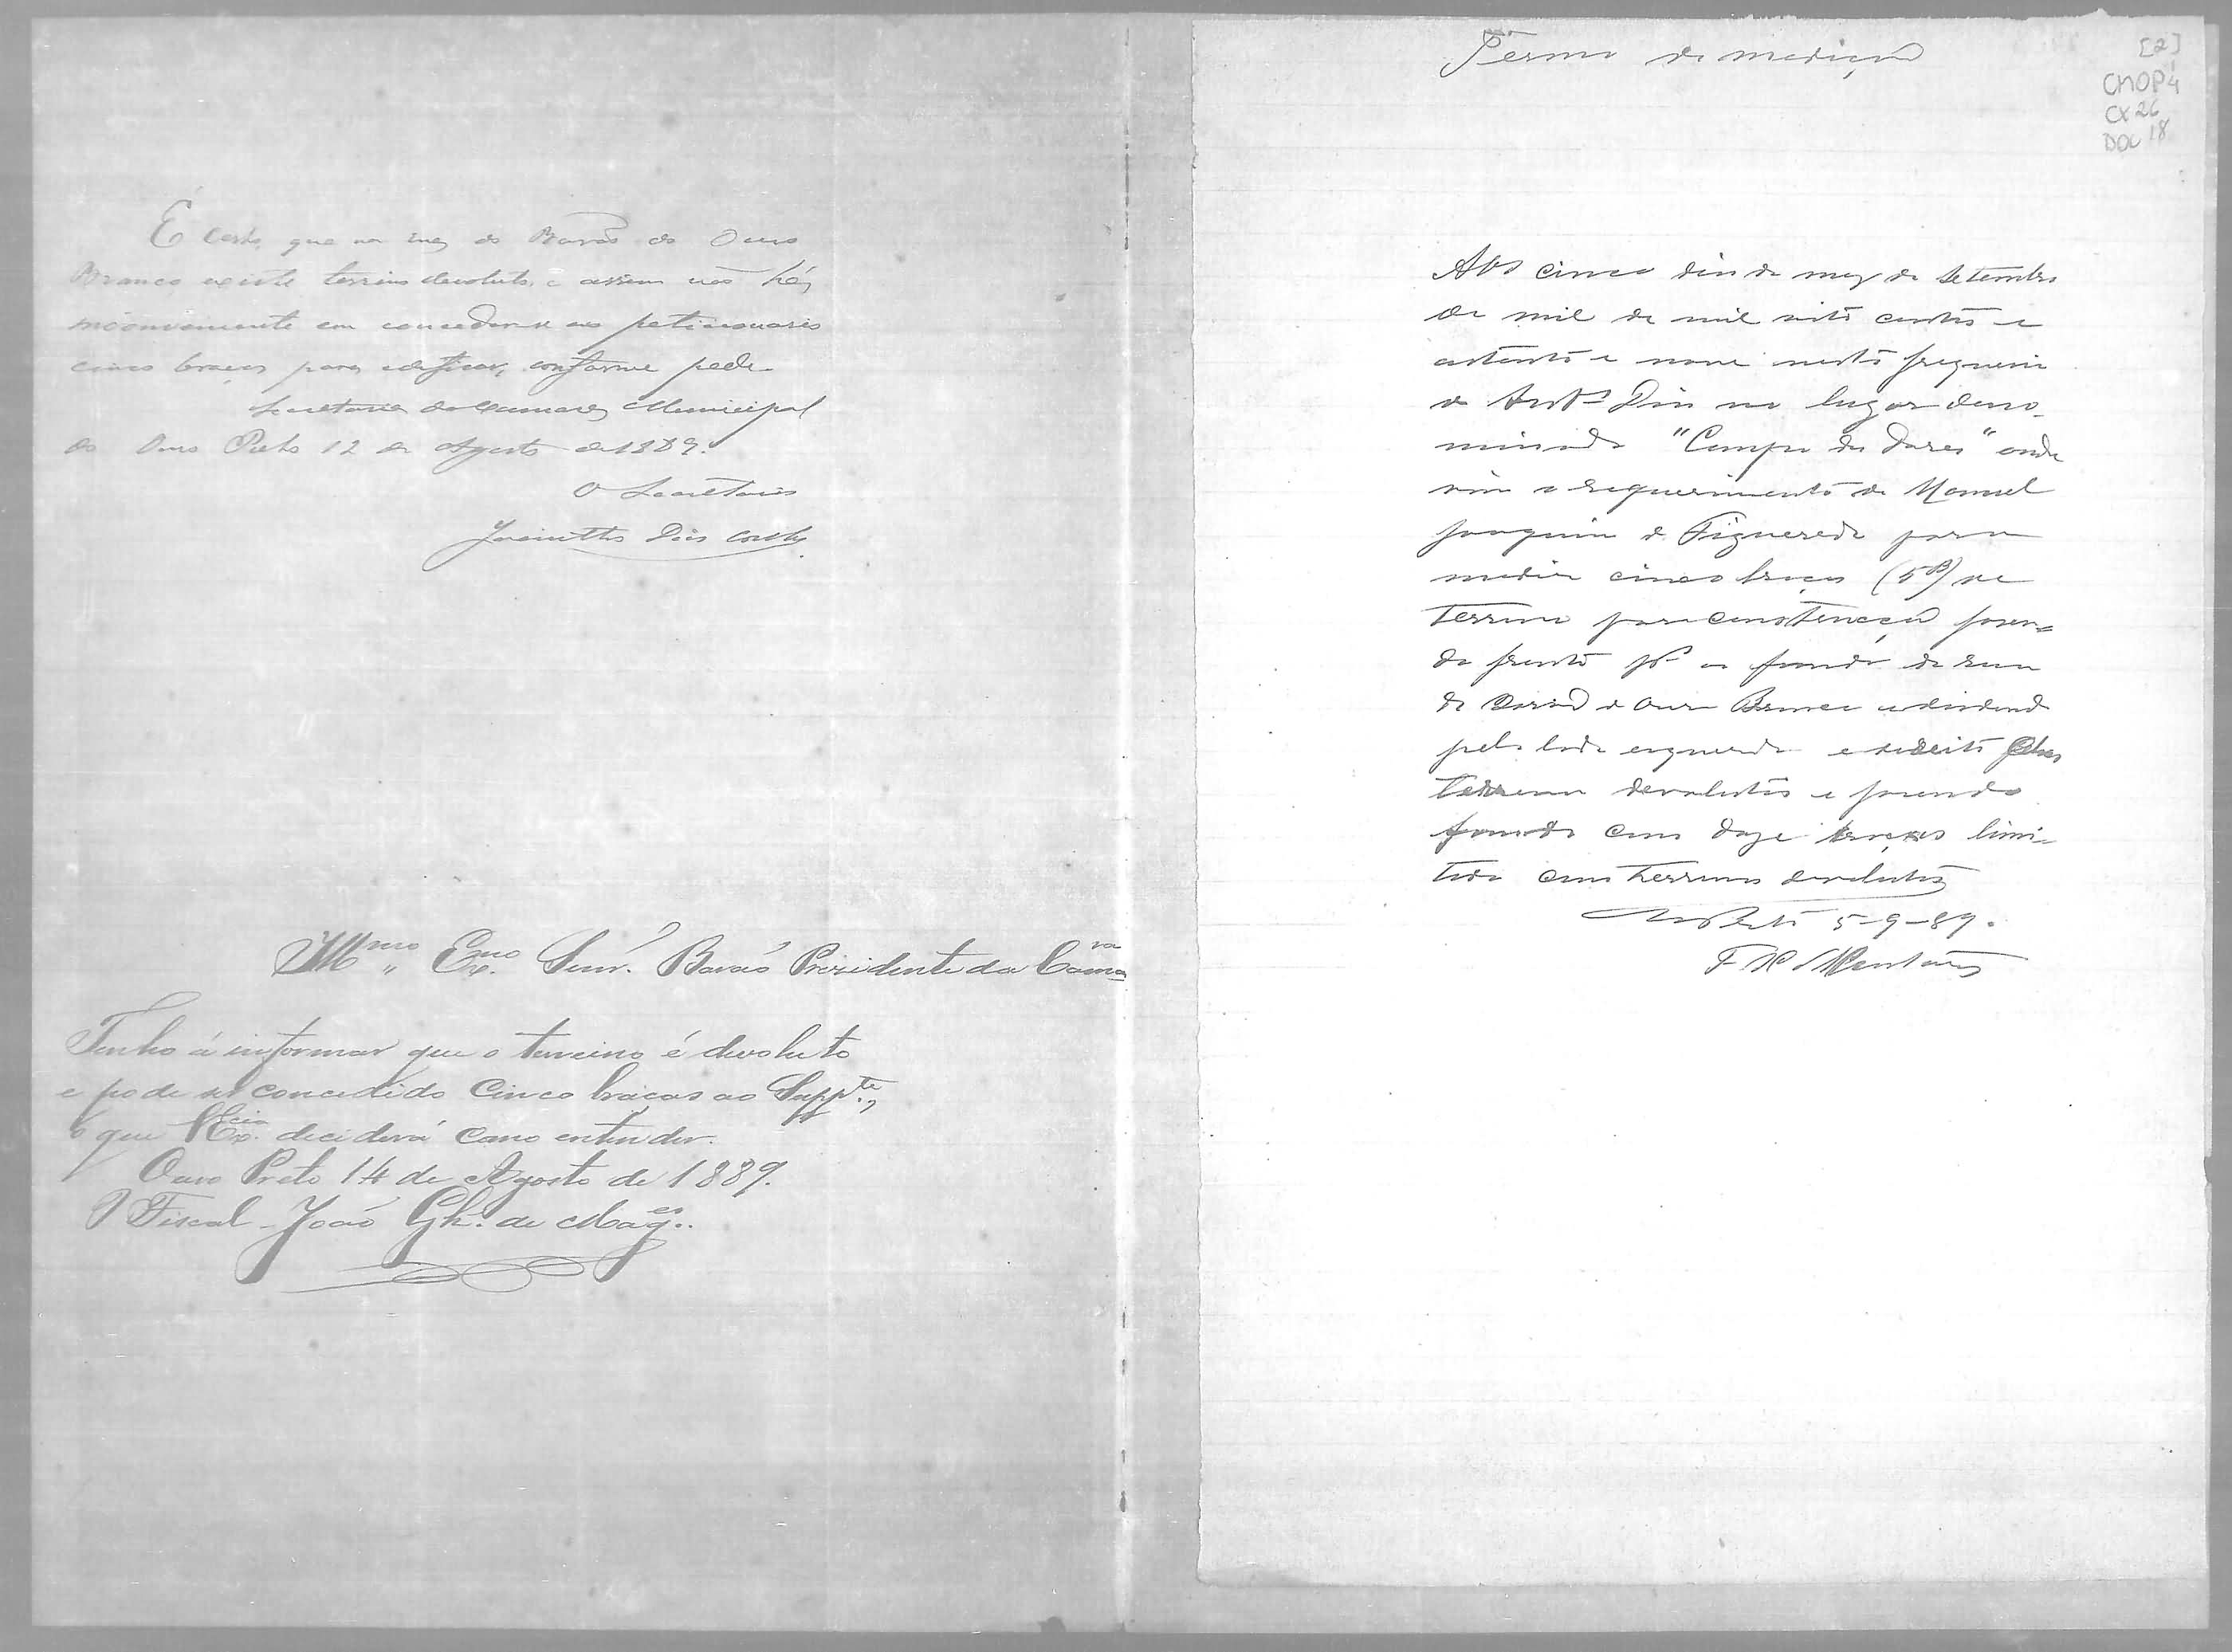 É certo, que na rua do Barão do Ouro
Branco existe terreno devoluto, e assim não há
inconveniente em conceder-se ao peticionario
cinco braças para edificar, conforme pede.
Secretaria da Camara Municipal
do Ouro Preto 12 de Agosto de 1889.
O Secretario
Jacintho Dias
Illmo Exmo Senr. Barão Prezidente da Camara
Tenho á informar que o terreino é devoluto
e pode ser concedido Cinco braças ao Suppte.,
o que VExcia. deciderá como entender.
Ouro Preto 14 de Agosto de 1889.
O Fiscal João Gh. de Mages..
Termo de medição
[2]
CMOP 4
CX 26
DOC 18
Aos cinco dias do mez de Setembro
de mil de mil oito centos e
oitenta e nove nesta freguezia
de Antº Dias no lugar deno-
minado "Campo das Dores" onde
vim a requerimento de Manuel
Joaquim de Figueredo para
medir cinco braças (5B) de
terreno para construcção fazen-
do frente pª o fundo da rua
do Barão de Ouro Branco e dividindo
pelo lado esquerdo e direito pelos
terrenos devolutos e fazendo
fundo com doze braças limi-
tado com terrenos devolutos
Ouro Preto 5-9-89.